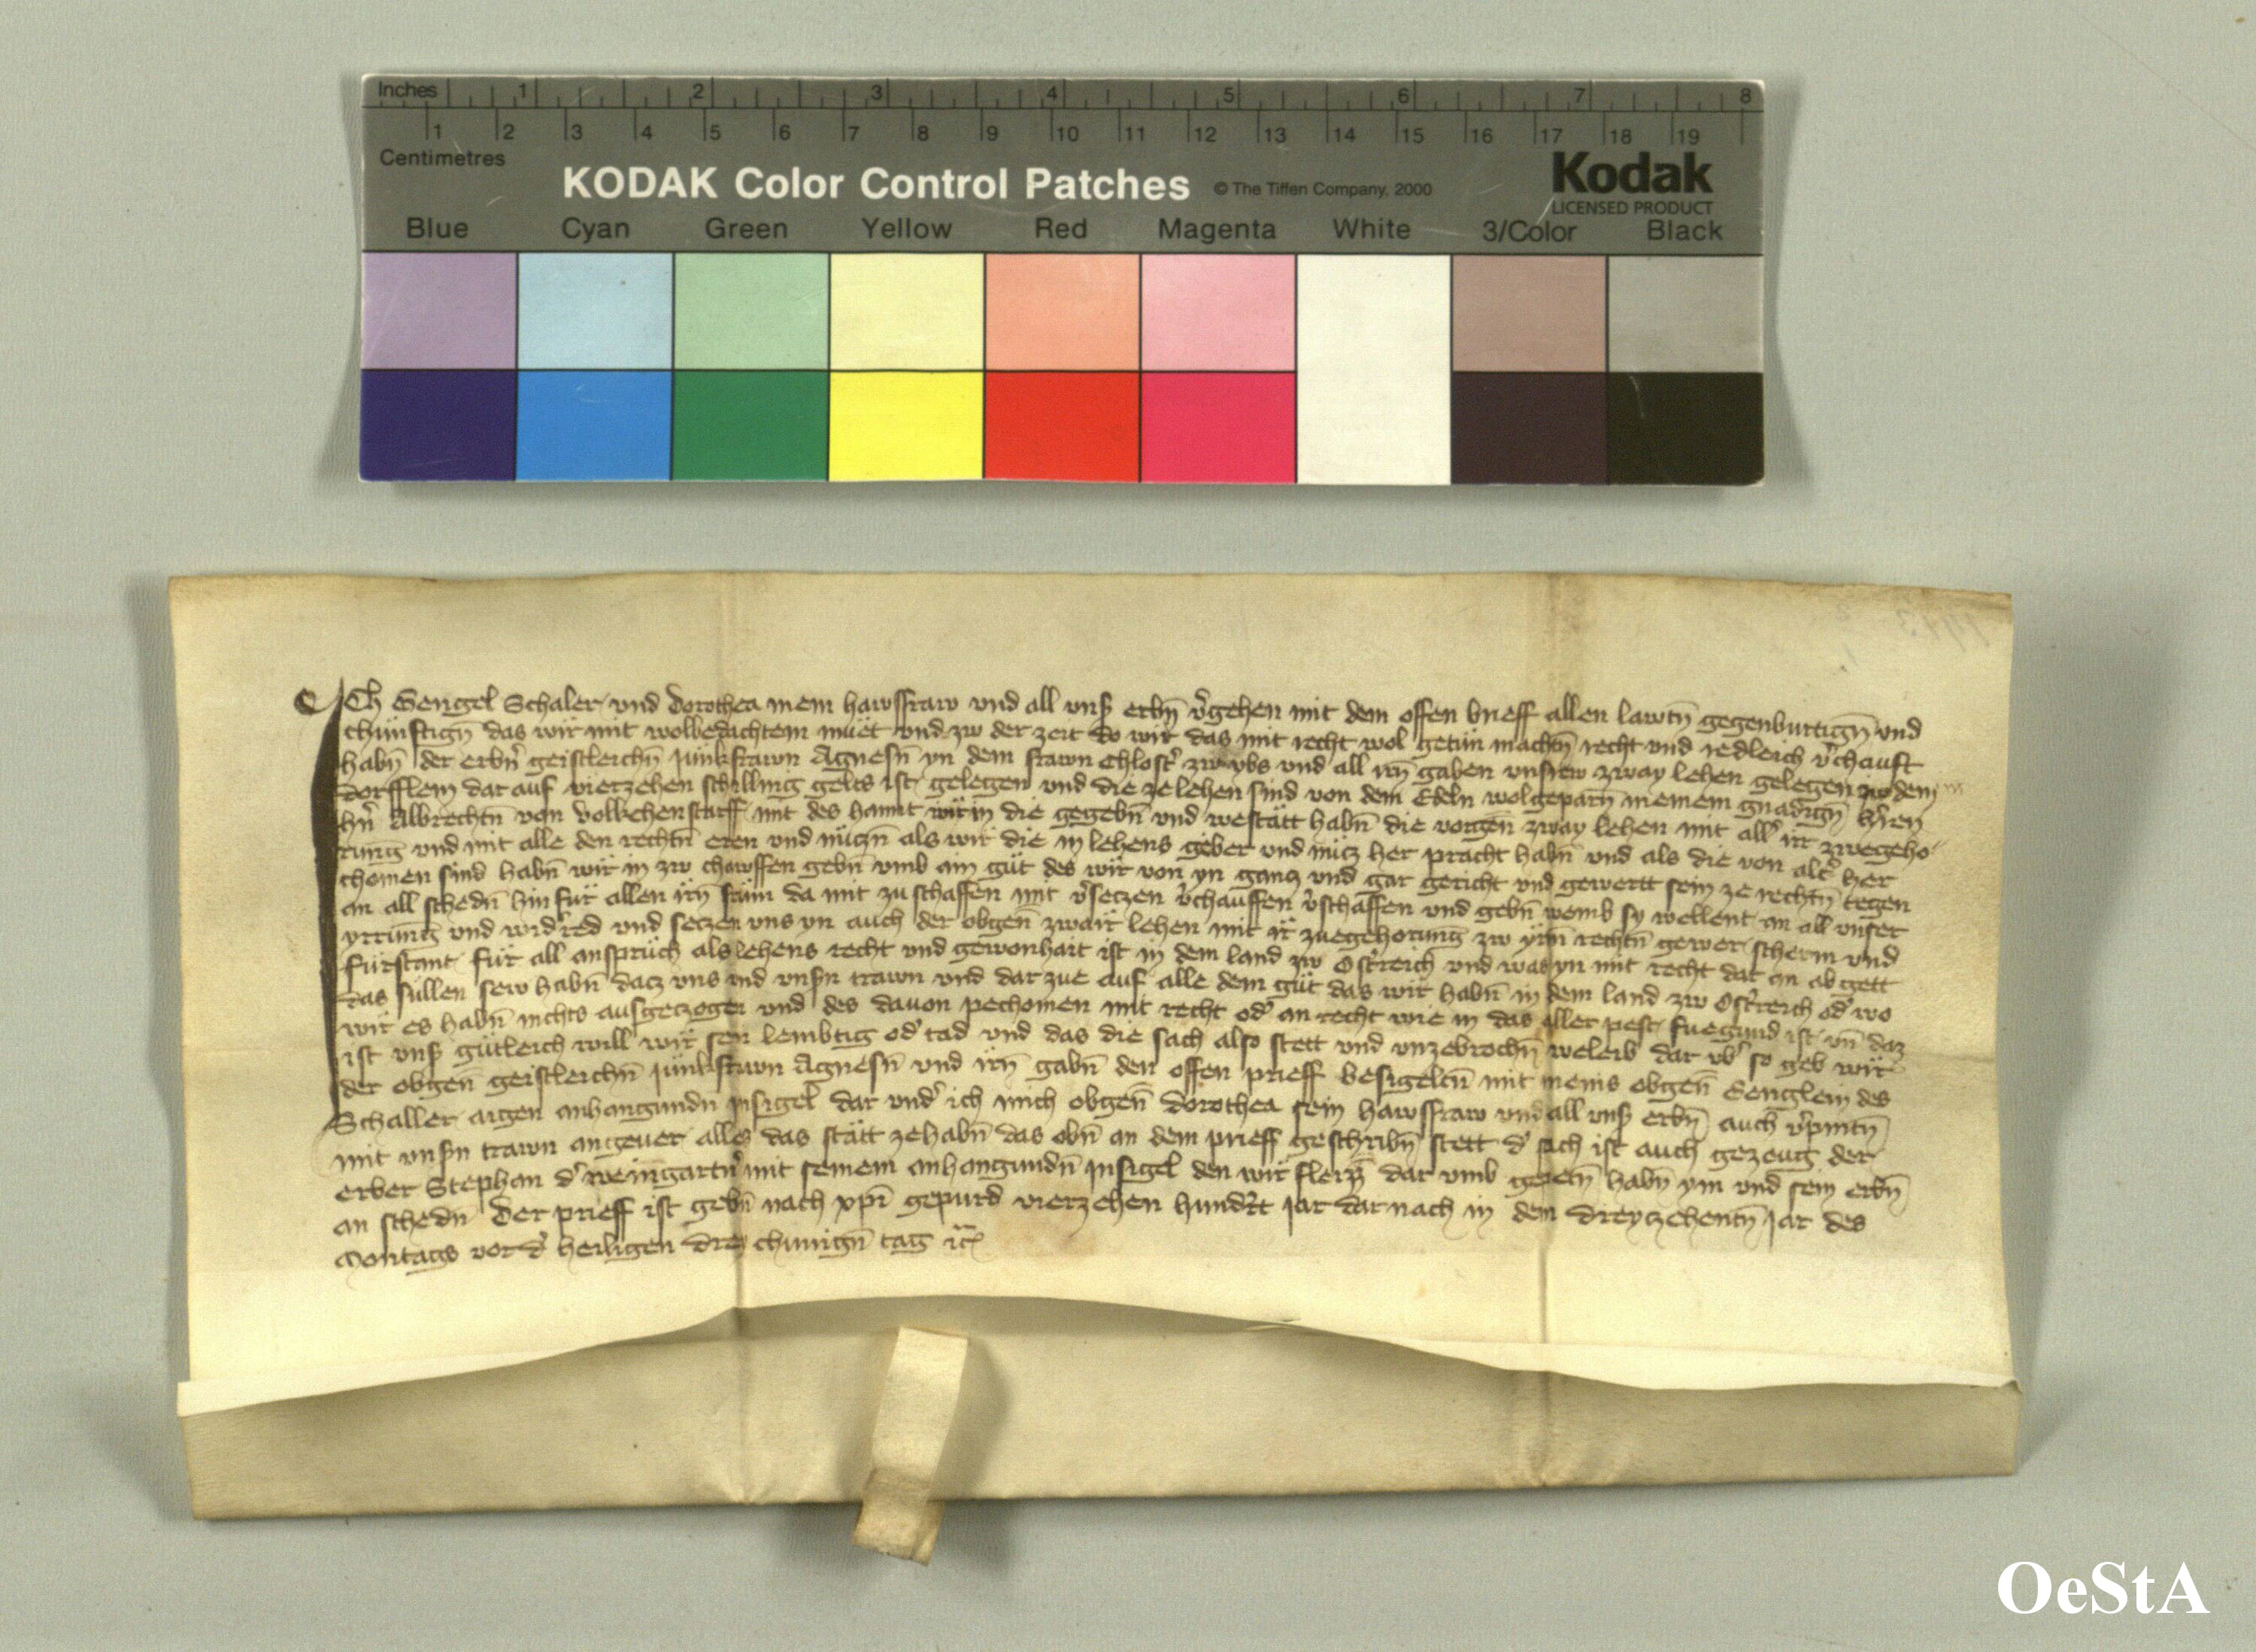 Inches 1 2 3 4 5 6 7 8
1 2 3 4 5 6 7 8 9 10 11 12 13 14 15 16 17 18 19
Centimetres
KODAK Color Control Patches © The Tiffen Company, 2000 Kodak
LICENSED PRODUCT
Blue Cyan Green Yellow Red Magenta White 3/Color Black
Ich Sengel Schaler und Dorothea mein hawsfraw und all unser erbn̄ v̓gehen mit dem offen brieff allen lawtn̄ gegenburtign̄ und
chünftign̄ das wir mit wolbedachtem müet und zw der zeit do wir das mit recht wol getün machtn̄ recht und redleich v̓chauft
habn̄ der erbn̓ geistleichn̄ junkfrawn Agnesn̄ yn dem frawn Chlost̓ zw ybs und all irn̄ gaben unsrew zway lehen gelegen zw dem
dorfflein dar auf vierzehen schilling gelts ist gelegen und die ze lehen sind von dem Edeln wolgeparn̄ meinem gnadign̄ h̓ren
hn̓ Albrechtn̄ von Volkchenstarff mit des hannt wir in die gegebn̄ und westätt habn̄ die vorgen̄ zway lehen mit all̓ ir zwegeho
rung und mit alle den rechtn̄ eren und nüczn̄ als wir die in lehens geber und nücz her pracht habn̄ und als die von alt̓ her
chomen sind habn̄ wir in zw chawffen gebn̄ umb ain güt des wir von yn gancz und gar gericht und gewertt sein ze rechtn̄ tegen
an all schedn̄ hin für allen irn̄ frum da mit zu schaffen mit v̓seczen v̓chauffen v̓schaffen und gebn̄ wemb sy wellent an all unser
yrrung und wid̓red und seczen uns yn auch der obgen̄ zwair lehen mit ir zuegehorung zw yrn̄ rechtn̄ gewer scherm und
fürstant für all ansprüch als lehens recht und gewonhait ist in dem land zw Ost̓reich und was yn mit recht dar an ab gett
das sullen sew habn̄ dacz uns und unsn̓ trawn und dar zue auf alle dem güt das wir habn̄ in dem land zw Ost̓reich od̓ wo
wir es habn̄ nichts ausgeczogen und des davon pechomen mit recht od̓ an recht wie in das aller pest fuegund ist un̄ daz
ist uns̓ gütleich will wir sein lembtig od̓ tad und das die sach also stett und unzebrochn̄ weleib dar ub̓ so geb wir
der obgen̄ geistleichn̄ junkfrawn Agnesn̄ und irn̄ gabn̄ den offen prieff besigeltn̄ mit meins obgen̄ Senglein des
Schaller aigen anhangundn̄ insigel dar und̓ ich mich obgen̄ Dorothea sein hawsfraw und all uns̓ erbn̄ auch v̓pintn̄
mit unsn̓ trawn angever alles das stätt zehabn̄ das obn̄ an dem prieff geschribn̄ stett d̓ sach ist auch gezeug der
erber Stephan d̓ weingartn̓ mit seinem anhangundn̄ insigel den wir dar umb gepetn̄ habn̄ ym und sein erbn̄
an schedn̄ Der prieff ist gebn̄ nach xp̄i gepurd vierzehen hund̓t jar dar nach in dem dreyczehentn̄ jar des
Montags vor d̓ heiligen drey chunign̄ tag
OeStA